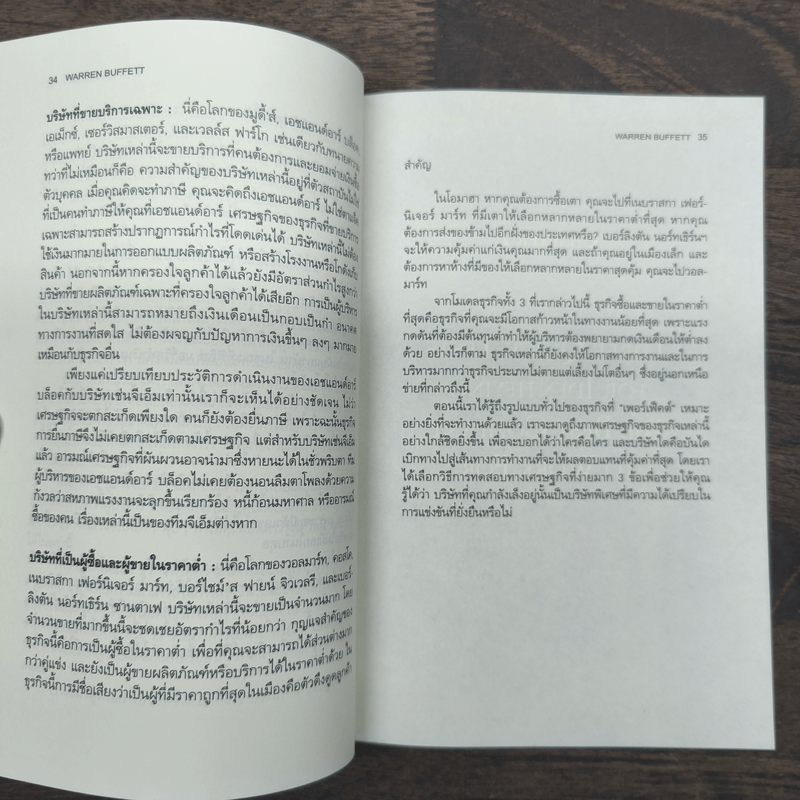 34 WARREN BUFFETT
บริษัทที่ขายบริการเฉพาะ : นี่คือโลกของมูดี้'ส์, เอชแอนด์อาร์ บล็อค,
เอเม็กซ์, เซอร์วิสมาสเตอร์, และเวลล์ส ฟาร์โก เช่นเดียวกับทนายความ
หรือแพทย์ บริษัทเหล่านี้จะขายบริการที่คนต้องการและยอมจ่ายเงินซื้อ
ทว่าที่ไม่เหมือนก็คือ ความสำคัญของบริษัทเหล่านี้อยู่ที่ตัวสถาบันไม่ใช่
ตัวบุคคล เมื่อคุณคิดจะทำภาษี คุณจะคิดถึงเอชแอนด์อาร์ ไม่ใช่ตามเด็ก
ที่เป็นคนทำภาษีให้คุณที่เอชแอนด์อาร์ เศรษฐกิจของธุรกิจที่ขายบริการ
เฉพาะสามารถสร้างปรากฏการณ์กำไรที่โดดเด่นได้ บริษัทเหล่านี้ไม่ต้อง
ใช้เงินมากมายในการออกแบบผลิตภัณฑ์ หรือสร้างโรงงานหรือโกดังเก็บ
สินค้า นอกจากนี้หากครองใจลูกค้าได้แล้วยังมีอัตราส่วนกำไรสูงกว่า
บริษัทที่ขายผลิตภัณฑ์เฉพาะที่ครองใจลูกค้าได้เสียอีก การเป็นผู้บริหาร
ในบริษัทเหล่านี้สามารถหมายถึงเงินเดือนเป็นกอบเป็นกำ อนาคต
ทางการงานที่สดใส ไม่ต้องผจญกับปัญหาการเงินขึ้นๆ ลงๆ มากมาย
เหมือนกับธุรกิจอื่น
เพียงแค่เปรียบเทียบประวัติการดำเนินงานของเอชแอนด์อาร์
บล็อคกับบริษัทเช่นจีเอ็มเท่านั้นเราก็จะเห็นได้อย่างชัดเจน ไม่ว่า
เศรษฐกิจจะตกสะเก็ดเพียงใด คนก็ยังต้องยื่นภาษี เพราะฉะนั้นธุรกิจ
การยื่นภาษีจึงไม่เคยตกสะเก็ดตามเศรษฐกิจ แต่สำหรับบริษัทเช่นจีเอ็ม
แล้ว อารมณ์เศรษฐกิจที่ผันผวนอาจนำมาซึ่งหายนะได้ในชั่วพริบตา ทีม
ผู้บริหารของเอชแอนด์อาร์ บล็อคไม่เคยต้องนอนลืมตาโพลงด้วยความ
กังวลว่าสหภาพแรงงานจะลุกขึ้นเรียกร้อง หนี้ก้อนมหาศาล หรืออารมณ์
ซื้อของคน เรื่องเหล่านี้เป็นของทีมจีเอ็มต่างหาก
บริษัทที่เป็นผู้ซื้อและผู้ขายในราคาต่ำ : นี่คือโลกของวอลมาร์ท, คอสโค,
เนบราสกา เฟอร์นิเจอร์ มาร์ท, บอร์ไชม์'ส ฟายน์ จิวเวลรี, และเบอร์-
ลิงตัน นอร์ทเธิร์น ซานตาเฟ บริษัทเหล่านี้จะขายเป็นจำนวนมาก โดย
จำนวนขายที่มากขึ้นนี้จะชดเชยอัตรากำไรที่น้อยกว่า กุญแจสำคัญของ
ธุรกิจนี้คือการเป็นผู้ซื้อในราคาต่ำ เพื่อที่คุณจะสามารถได้ส่วนต่างมาก
กว่าคู่แข่ง และยังเป็นผู้ขายผลิตภัณฑ์หรือบริการได้ในราคาต่ำด้วย ใน
ธุรกิจนี้การมีชื่อเสียงว่าเป็นผู้ที่มีราคาถูกที่สุดในเมืองคือตัวดึงดูดลูกค้า
WARREN BUFFETT 35
สำคัญ
ในโอมาฮา หากคุณต้องการซื้อเตา คุณจะไปที่เนบราสกา เฟอร์-
นิเจอร์ มาร์ท ที่มีเตาให้เลือกหลากหลายในราคาต่ำที่สุด หากคุณ
ต้องการส่งของข้ามไปอีกฝั่งของประเทศหรือ? เบอร์ลิงตัน นอร์ทเธิร์นฯ
จะให้ความคุ้มค่าแก่เงินคุณมากที่สุด และถ้าคุณอยู่ในเมืองเล็ก และ
ต้องการหาห้างที่มีของให้เลือกหลากหลายในราคาสุดคุ้ม คุณจะไปวอล-
มาร์ท
จากโมเดลธุรกิจทั้ง 3 ที่เรากล่าวไปนี้ ธุรกิจซื้อและขายในราคาต่ำ
ที่สุดคือธุรกิจที่คุณจะมีโอกาสก้าวหน้าในทางงานน้อยที่สุด เพราะแรง
กดดันที่ต้องมีต้นทุนต่ำทำให้ผู้บริหารต้องพยายามกดเงินเดือนให้ต่ำลง
ด้วย อย่างไรก็ตาม ธุรกิจเหล่านี้ก็ยังคงให้โอกาสทางการงานและในการ
บริหารมากกว่าธุรกิจประเภทไม่ตายแต่เลี้ยงไม่โตอื่นๆ ซึ่งอยู่นอกเหนือ
ข่ายที่กล่าวถึงนี้
ตอนนี้เราได้รู้ถึงรูปแบบทั่วไปของธุรกิจที่ "เพอร์เฟ็คต์" เหมาะ
อย่างยิ่งที่จะทำงานด้วยแล้ว เราจะมาดูถึงภาพเศรษฐกิจของธุรกิจเหล่านี้
อย่างใกล้ชิดยิ่งขึ้น เพื่อจะบอกได้ว่าใครคือใคร และบริษัทใดคือบันได
เบิกทางไปสู่เส้นทางการทำงานที่จะให้ผลตอบแทนที่คุ้มค่าที่สุด โดยเรา
ได้เลือกวิธีการทดสอบทางเศรษฐกิจที่ง่ายมาก 3 ข้อเพื่อช่วยให้คุณ
รู้ได้ว่า บริษัทที่คุณกำลังเล็งอยู่นั้นเป็นบริษัทพิเศษที่มีความได้เปรียบใน
การแข่งขันที่ยั่งยืนหรือไม่